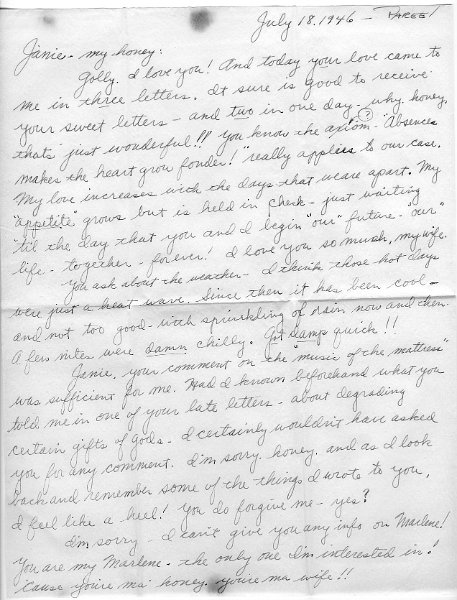 July 18, 1946 - PAREE!
Janie - my honey:
Golly, I love you! And today your love came to
me in three letters. It sure is good to receive
your sweet letters - and two in one day - why, honey,
that's just wonderful!! You know the axiom - "Absence
(?)
makes the heart grow fonder!" really applies to our case.
My love increases with the days that we are apart. My
"appetite" grows but is held in check - just waiting
'til the day that you and I begin "our" future - "our"
life - together - forever! I love you so much, my wife.
You ask about the weather - I think those hot days
were just a heat wave. Since then it has been cool -
and not too good - with sprinkling of rain now and then.
A few nites were damn chilly. Got damp quick!!
Janie, your comment on the "music of the mattress"
was sufficient for me. Had I known beforehand what you
told me in one of your late letters - about degrading
certain gifts of gods - I certainly wouldn't have asked
you for any comment. I'm sorry, honey, and as I look
back and remember some of the things I wrote to you,
I feel like a heel! You do forgive me - yes?
I'm sorry - I can't give you any info on Marlene!
You are my Marlene - the only one I'm interested in!
'Cause you're ma honey, you're ma wife!!